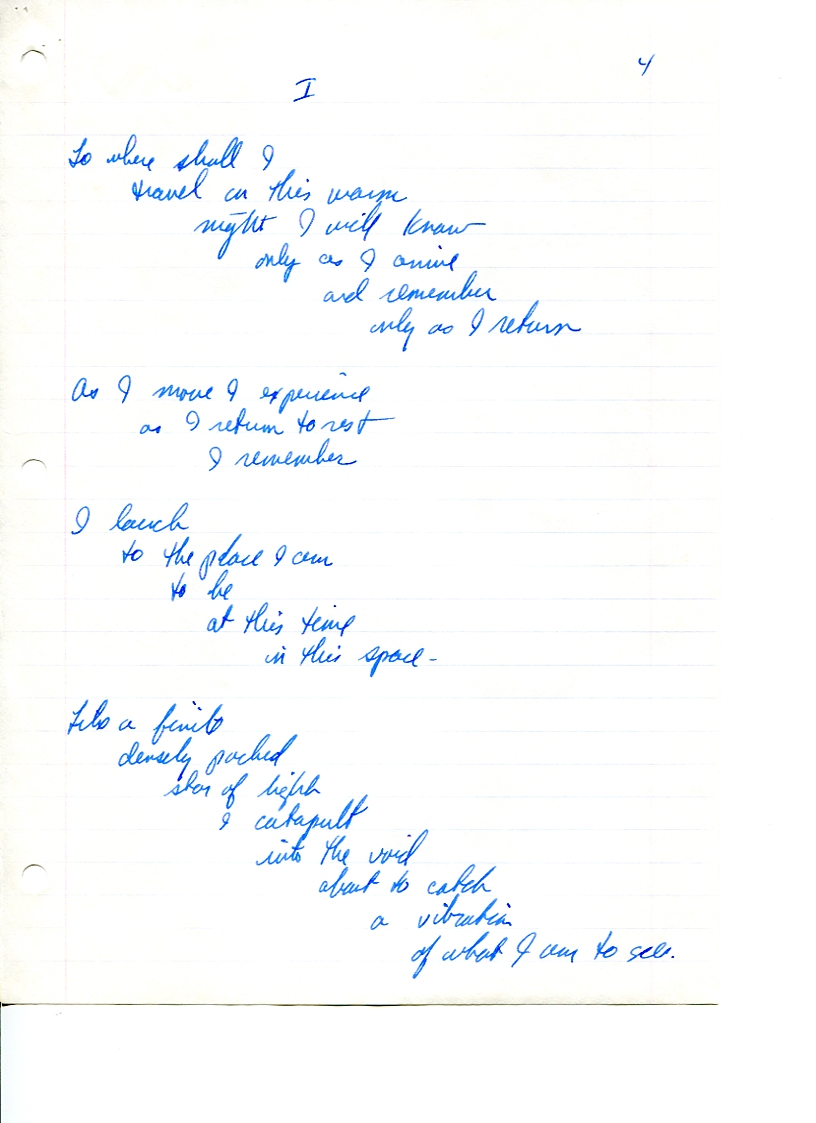 4
I
To where shall I
travel on this warm
night I will know
only as I arrive
and remember
only as I return
As I move I experience
as I return to rest
I remember
I launch
to the place I am
to be
at this time
in this space-
Like a finite
densely packed
star of light
I catapult
into the void
about to catch
a vibration
of what I am to see.